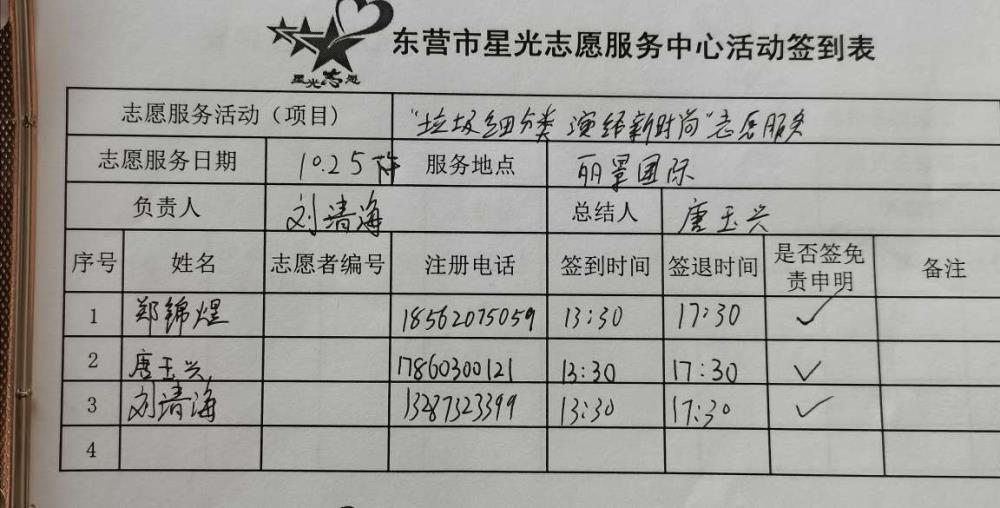 星光志愿
东营市星光志愿服务中心活动签到表
志愿服务活动（项目） "垃圾细分类 演绎新时尚"志愿服务
志愿服务日期 10.25 下午 服务地点 丽景国际
负责人 刘清海 总结人 唐玉兴
序号 姓名 志愿者编号 注册电话 签到时间 签退时间 是否签免责申明 备注
1 郑锦煜 18562075059 13:30 17:30 ✓
2 唐玉兴 17860300121 13:30 17:30 ✓
3 刘清海 13287323399 13:30 17:30 ✓
4